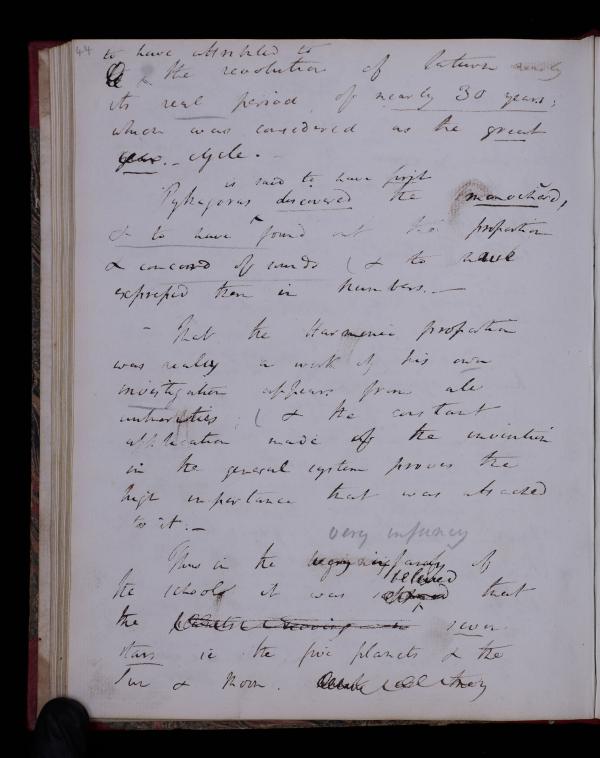 44
to have attributed to
& the revolution of Saturn nearly
its real period of nearly 30 years;
which was considered as the great
year. – cycle.
is said to have first
Pythagoras discovered the monochord,
& to have found out the proportion
& concord of sounds ( & to have
expressed them in numbers. —
– That the Harmonic proportion
was really a work of his own
investigation appears from all
authorities; ( & the constant
application made of the invention
in the general system proves the
high importance that was attached
to it. —
very infancy
Thus in the very infancy of
the schools it was
believed
that
the seven
stars ie the five planets & the
Sun & Moon.